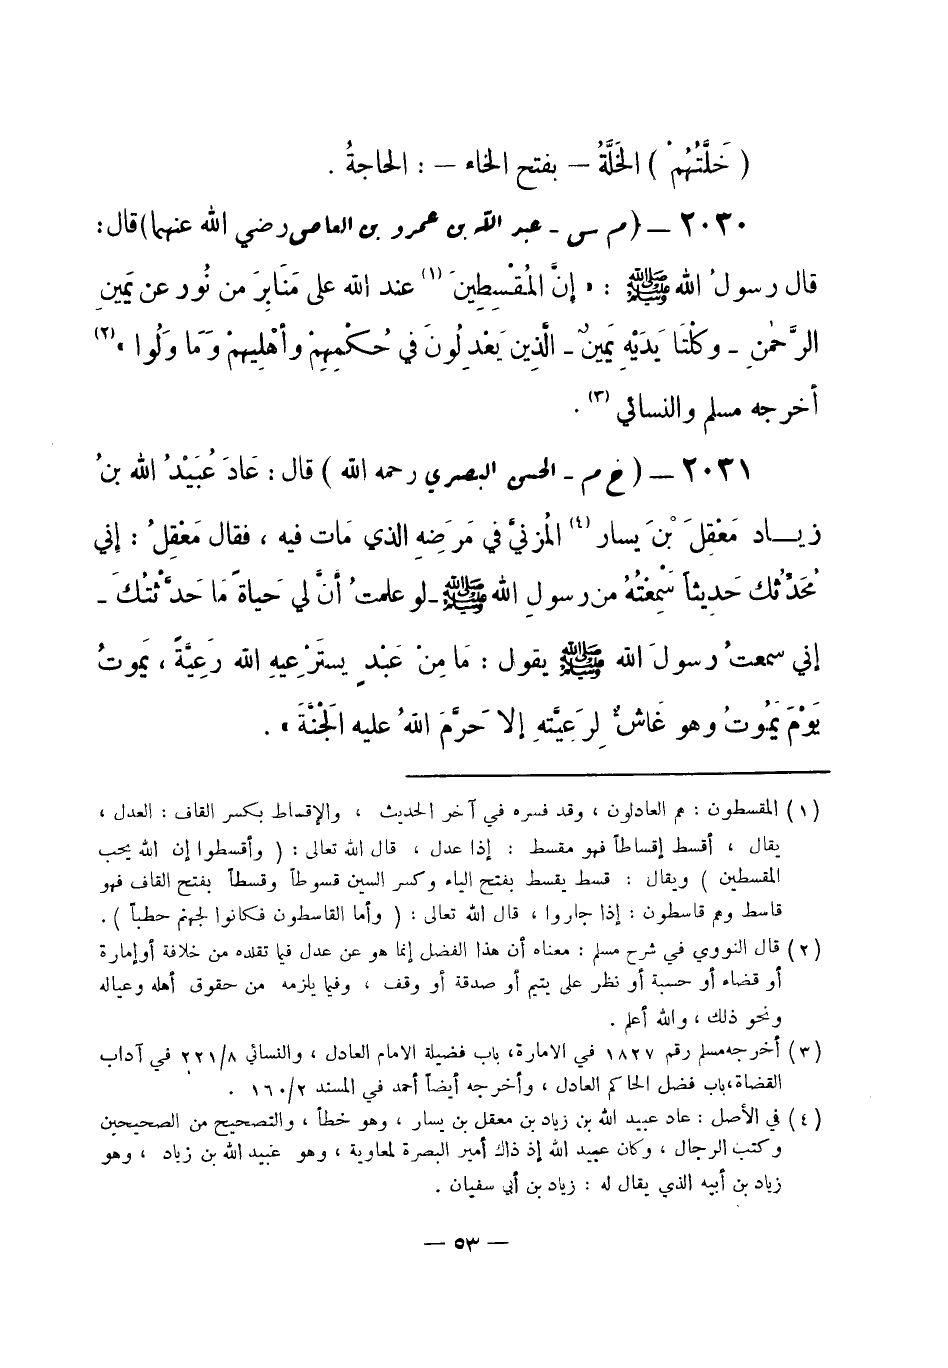 ( خَلَّتُهُمْ ) الخَلَّةُ – بفتح الخاء – : الحاجةُ .
٢٠٣٠ – (م س - عبد الله بن عمرو بن العاص رضي الله عنهما) قال :
قال رسولُ الله ﷺ : « إنَّ المُقْسِطِينَ (١) عند الله على مَنَابِرَ من نُور عن يَمينِ
الرَّحْمنِ - وكلْتَا يَدَيْهِ يَمينٌ - الَّذِين يَعْدِلُونَ في حُكْمِهِمْ وأهْلِيهِمْ وَمَا وَلُوا » (٢)
أخرجه مسلم والنسائي (٣) .
٢٠٣١ – ( خ م - الحسن البصري رحمه الله ) قال : عَادَ عُبَيْدُ الله بنُ
زيــاد مَعْقِلَ بْنَ يَسار (٤) المُزنيَّ في مَرَضِهِ الذي مَات فيه ، فقال مَعْقِلُ : إني
مُحَدِّثُك حَديثاً سَمِعْتُهُ من رسولِ الله ﷺ - لو علمتُ أنَّ لي حَياةً مَا حَدَّثْتُكَ -
إني سمعتُ رسولَ الله ﷺ يقول : مَا مِنْ عَبْدٍ يسترْعِيهِ الله رَعِيَّةً ، يَموتُ
يَوْمَ يَمُوتُ وهو غَاشٌّ لِرَعِيَّتهِ إلا حَرَّمَ اللهُ عليه الجنَّةَ » .
(١) المقسطون : هم العادلون ، وقد فسره في آخر الحديث ، والإقساط بكسر القاف : العدل ،
يقال ، أقسط إقساطاً فهو مقسط : إذا عدل ، قال الله تعالى : ( وأقسطوا إن الله يحب
المقسطين ) ويقال : قسط يقسط بفتح الياء وكسر السين قسوطاً وقسطاً بفتح القاف فهو
قاسط وهم قاسطون : إذا جاروا ، قال الله تعالى : ( وأما القاسطون فكانوا لجهنم حطباً ) .
(٢) قال النووي في شرح مسلم : معناه أن هذا الفضل إنما هو عن عدل فيما تقلده من خلافة أو إمارة
أو قضاء أو حسبة أو نظر على يتيم أو صدقة أو وقف ، وفيما يلزمه من حقوق أهله وعياله
ونحو ذلك ، والله أعلم .
(٣) أخرجه مسلم رقم ١٨٢٧ في الامارة، باب فضيلة الامام العادل ، والنسائي ٢٢١/٨ في آداب
القضاة، باب فضل الحاكم العادل ، وأخرجه أيضاً أحمد في المسند ١٦٠/٢ .
(٤) في الأصل : عاد عبيد الله بن زياد بن معقل بن يسار ، وهو خطأ ، والتصحيح من الصحيحين
وكتب الرجال ، وكان عبيد الله إذ ذاك أمير البصرة لمعاوية ، وهو عبيد الله بن زياد ، وهو
زياد بن أبيه الذي يقال له : زياد بن أبي سفيان .
– ٥٣ –